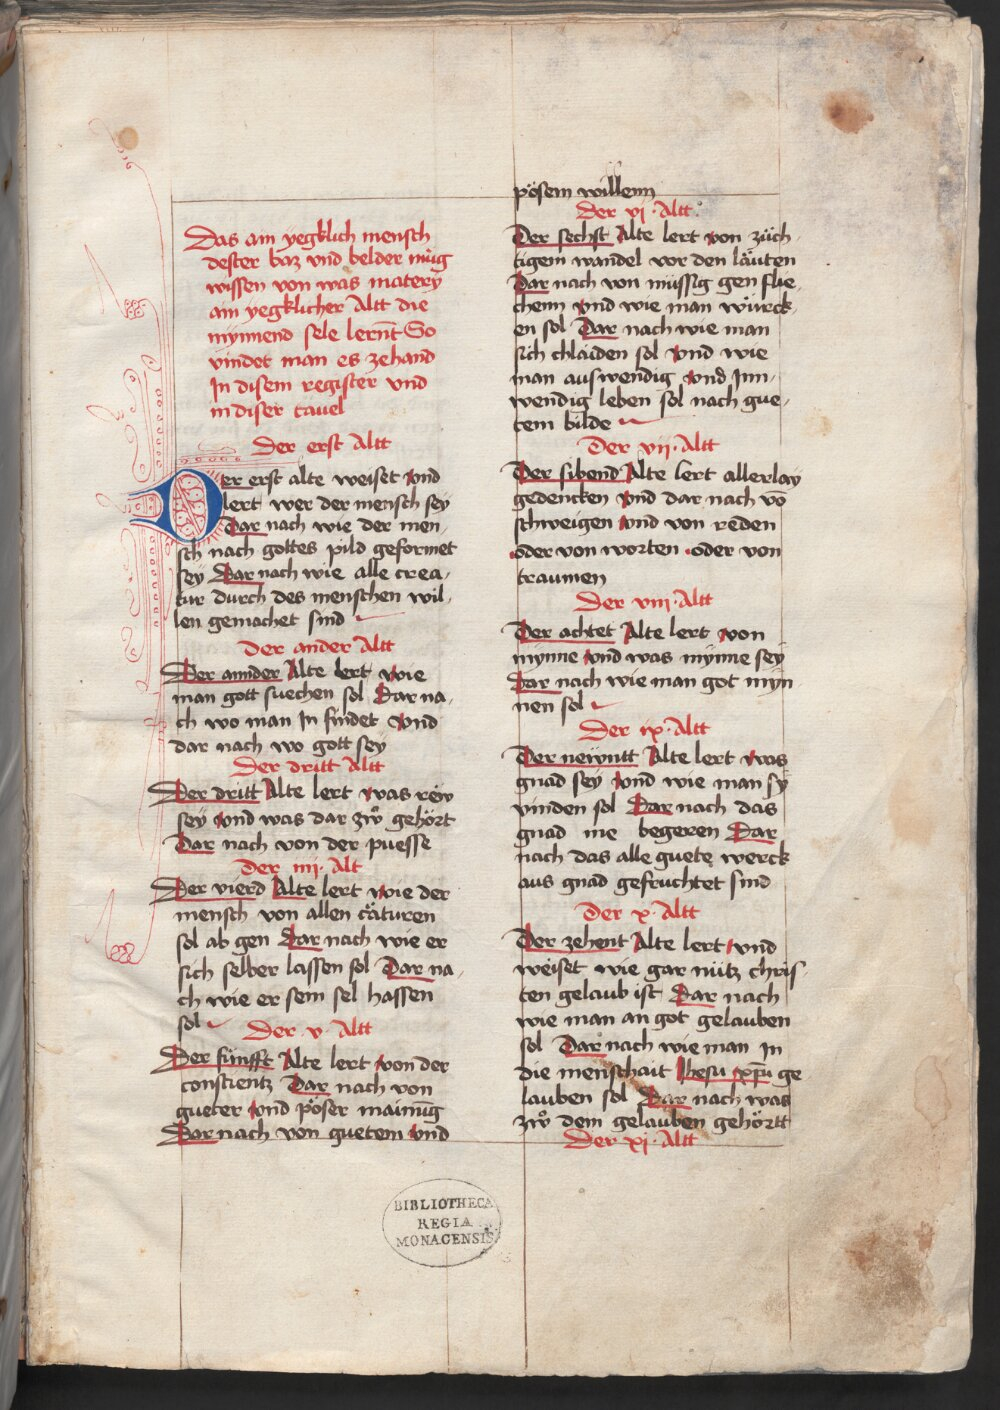 Das ain yegklich mensch
dester baz vnd belder müg
wissen von was matery
ain yegklicher Altt die
mynnend sele lernt So
vindet man es zehand
In disem register vnd
in diser tauel
Der erst Altt
Der erst alte weiset vnd
lert wer der mensch sey
Dar nach wie der men¬
sch nach gottes pild geformet
sey Dar nach wie alle crea¬
tur durch des menschen wil¬
len gemachet sind
Der ander Altt
Der annder Alte lert wie
man gott suechen sol Dar na¬
ch wo man In findet vnd
dar nach wo gott sey
Der dritt Altt
Der dritt Alte lert was rew
sey vnd was dar zw gehört
Dar nach von der puesse
Der iiii· Alt
Der vierd Alte lert wie der
mensch von allen cäturen
sol ab gen Dar nach wie er
sich selber lassen sol Dar na¬
ch wie er sein sel hassen
sol
Der v· Altt
Der fünfft Alte lert von der
conscientz Dar nach von
gueter vnd pöser mainūg
Dar nach von guetem vnd
pösem willenn
Der vj· Altt
Der sechst Alte lert von züch
tigem wandel vor den läuten
Dar nach von müssig gen flie¬
chenn vnd wie man würck¬
en sol Dar nach wie man
sich chlaiden sol vnd wie
man auswendig vnd Inn¬
wendig leben sol nach gue¬
tem bilde
Der vii· Altt
Der sibend Alte lert allerlay
gedencken vnd dar nach vō
schweigen vnd von reden
oder von worten oder von
traumen
Der viii· Altt
Der achtet Alte lert von
mynne vnd was mynne sey
Dar nach wie man got myn
nen sol
Der ix· Altt
Der newntt Alte lert was
gnad sey vnd wie man sy
vinden sol Dar nach das
gnad nie begeren Dar
nach das alle guete werck
aus gnad gefruchtet sind
Der x· Altt
Der zehent Alte lert vnd
weiset wie gar nütz chris¬
ten gelaub ist Dar nach
wie man an got gelauben
sol Dar nach wie man in
die menschait Jhesu xp̄u ge
lauben sol Dar nach was
zw dem gelauben gehörtt
Der xj· Altt
BIBLIOTHECA
REGIA
MONACENSIS